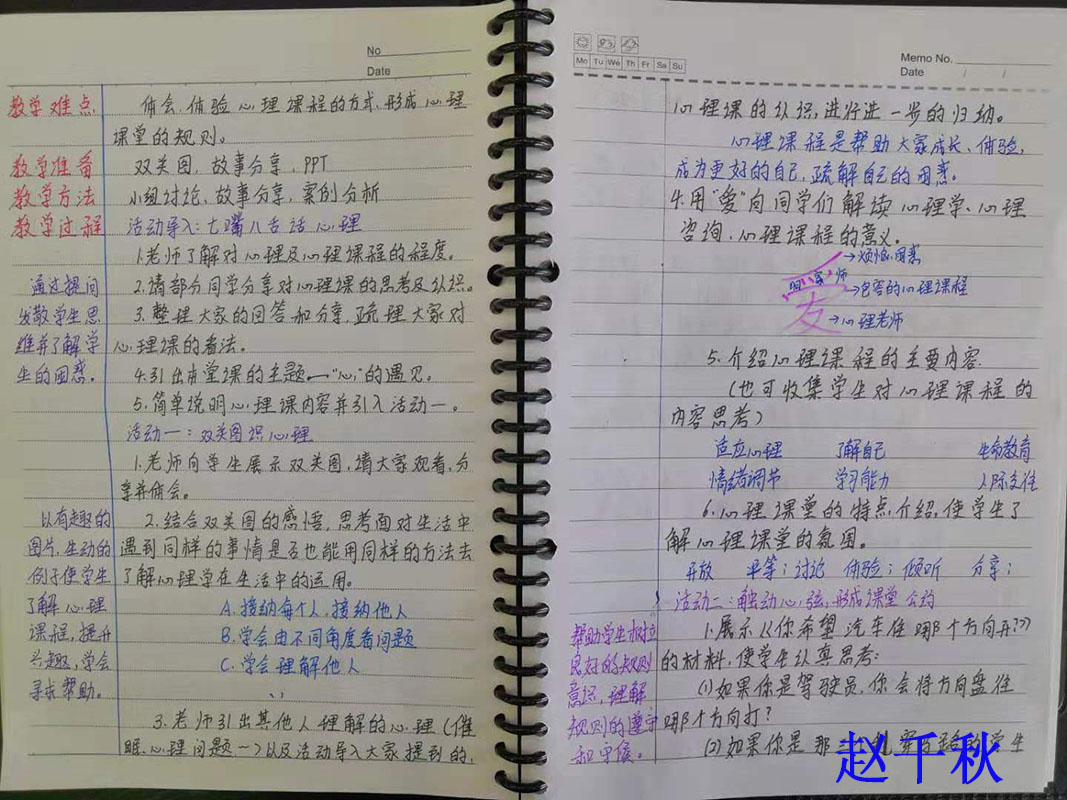 No
Date
教学难点 体会、体验心理课程的方式,形成心理
课堂的规则。
教学准备 双关图、故事分享、PPT
教学方法 小组讨论、故事分享、案例分析
教学过程 活动导入:七嘴八舌话心理
1.老师了解对心理及心理课程的程度。
通过提问 2.请部分同学分享对心理课的思考及认识。
发散学生思 3.整理大家的回答和分享,疏理大家对
维并了解学 心理课的看法。
生的困惑。 4.引出本堂课的主题—“心”的遇见。
5.简单说明心理课内容并引入活动一。
活动一:双关图识心理
1.老师向学生展示双关图,请大家观看,分
享并体会。
以有趣的 2.结合双关图的感悟,思考面对生活中
图片,生动的 遇到同样的事情是否也能用同样的方法去
例子使学生 了解心理学在生活中的运用。
了解心理 A.接纳每个人,接纳他人
课程,提升 B.学会由不同角度看问题
兴趣,学会 C.学会理解他人
寻求帮助。
3.老师引出其他人理解的心理(催
眠、心理问题一)以及活动导入大家提到的,
Mo Tu We Th Fr Sa Su
Memo No.
Date / /
心理课的认识,进行进一步的归纳。
心理课程是帮助大家成长、体验,
成为更好的自己,疏解自己的困惑。
4.用“爱”向同学们解读心理学、心理
咨询、心理课程的意义。
→烦恼、困惑
→包容的心理课程
友
→心理老师
5.介绍心理课程的主要内容
(也可收集学生对心理课程的
内容思考)
适应心理 了解自己 生命教育
情绪调节 学习能力 人际交往
6.心理课堂的特点介绍,使学生了
解心理课堂的氛围。
开放 平等;讨论 体验;倾听 分享;
活动二:触动心弦,形成课堂公约
帮助学生树立 1.展示《你希望汽车往哪个方向开?》
良好的规则 的材料,使学生认真思考:
意识,理解 (1)如果你是驾驶员,你会将方向盘往
规则的遵守 哪个方向打?
和 (2)如果你是那 学生
赵千秋